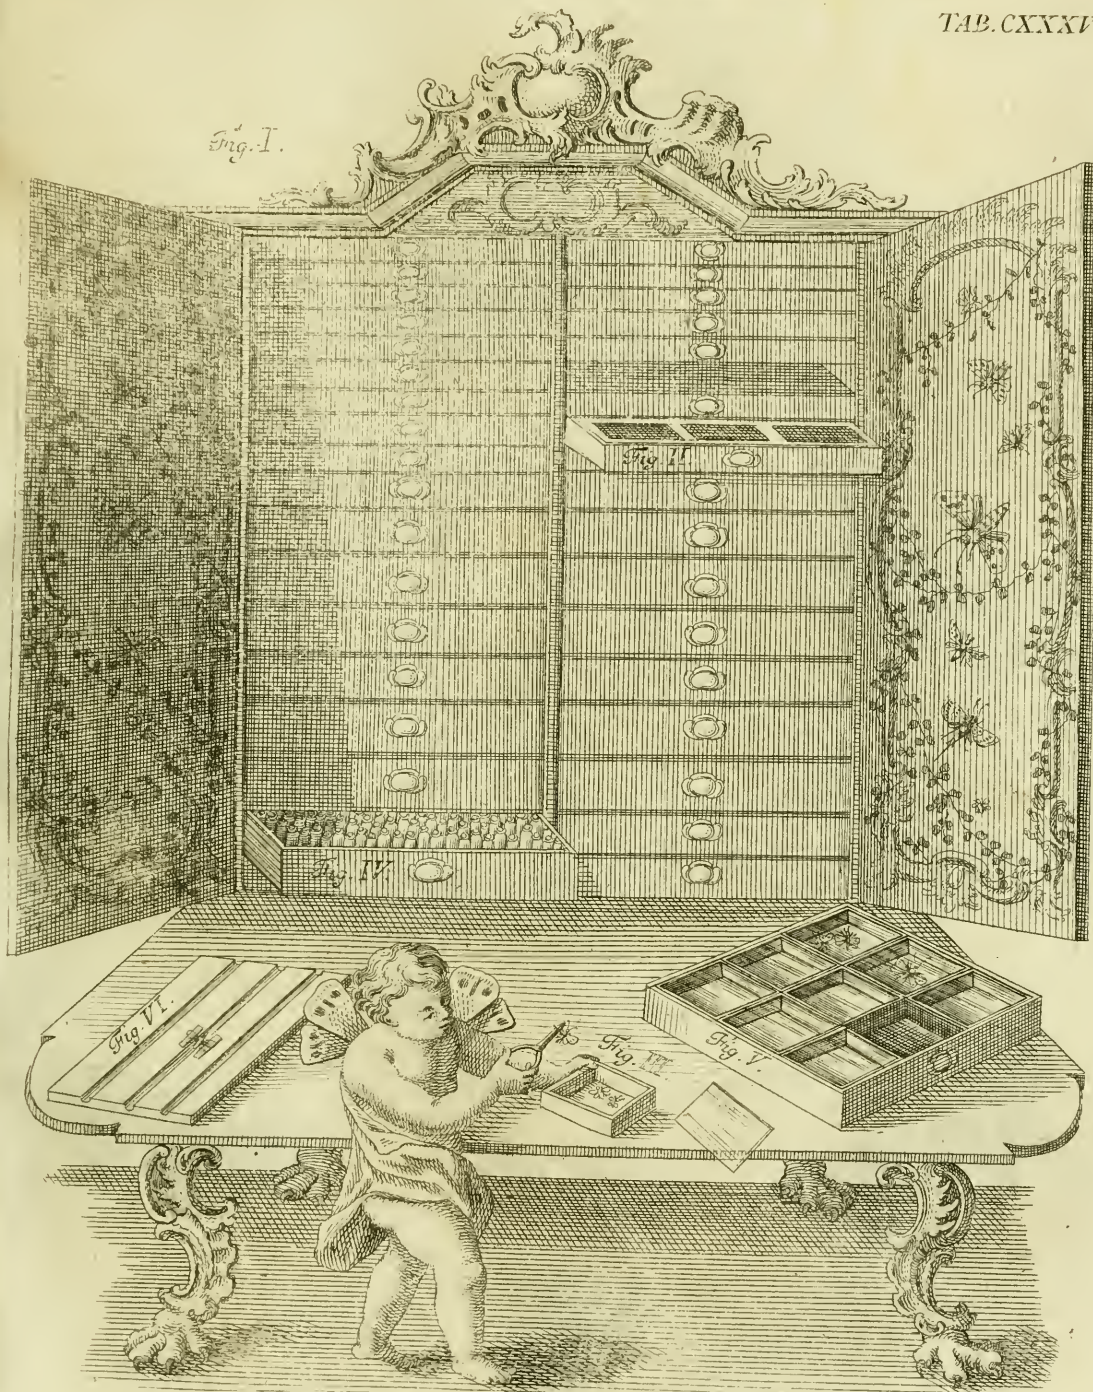 TAB. CXXXV
Fig. I.
Fig. II.
Fig. IV.
Fig. VI.
Fig. III.
Fig. V.